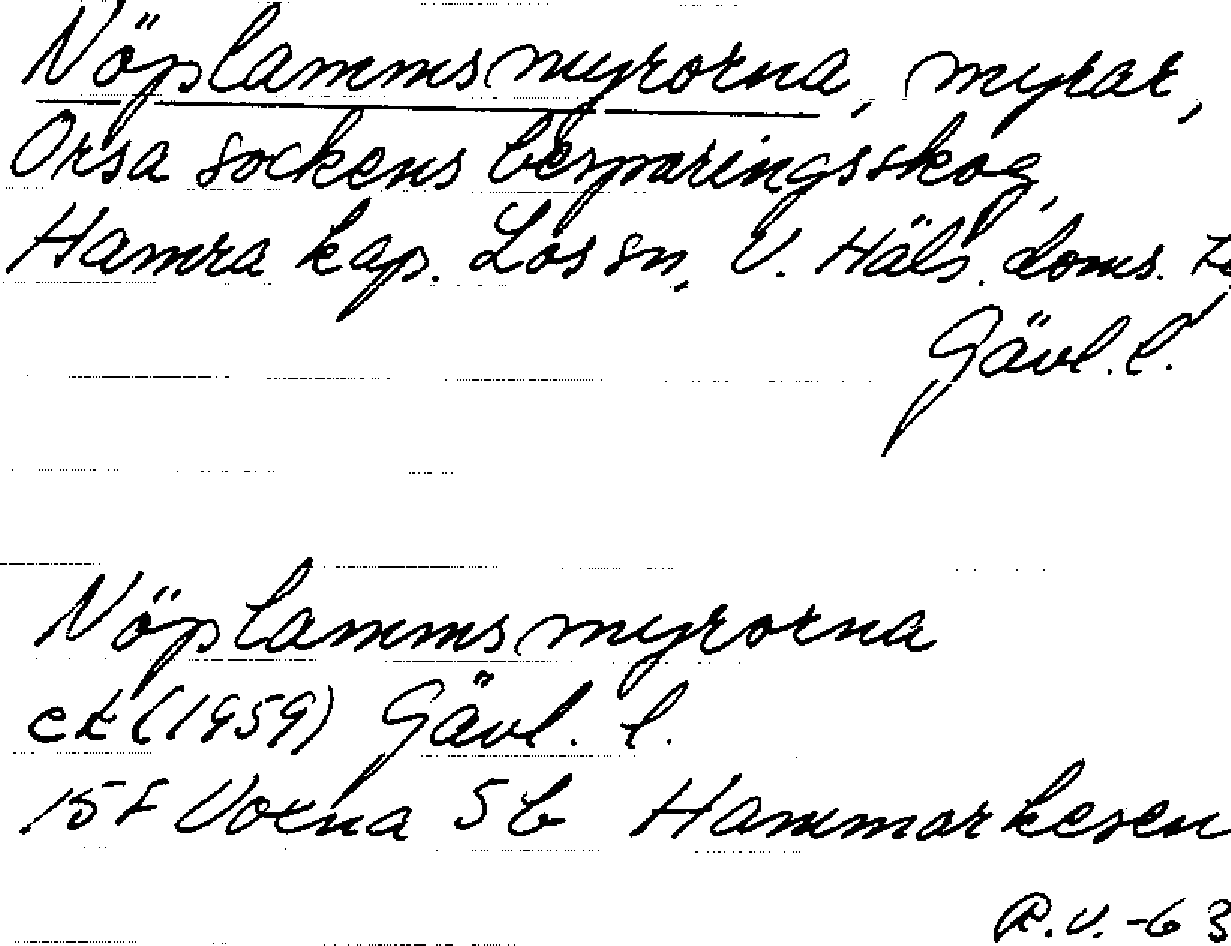 Nöplammsmyrorna, myrar,
Orsa sockens besparingsskog,
Hamra kap. Los sn, V. Häls. doms.
Gävl. l.
Nöplammsmyrorna
ek (1959) Gävl. l.
15F Voxna 5b Hammarkesen
R.V. -63